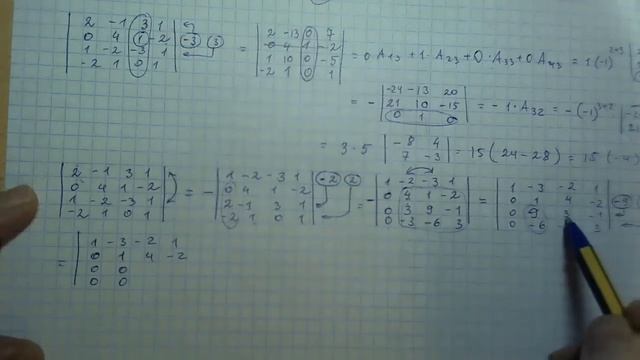 | 2 -1 3 1 |
| 0 4 1 -2 | (-3) (3)
| 1 -2 -3 1 |
| -2 1 0 1 |
= | 2 -13 0 7 |
| 0 4 1 -2 |
| 1 10 0 -5 |
| -2 1 0 1 |
= 0 A13 + 1·A23 + 0·A33 + 0 A43 = 1(-1)^2+3
= - | -24 -13 20 |
| 21 10 -15 |
| 0 1 0 |
= -1·A32 = -(-1)^3+2
= 3·5 | -8 4 |
| 7 -3 |
= 15(24-28) = 15(-4)
| 2 -1 3 1 |
| 0 4 1 -2 |
| 1 -2 -3 1 |
| -2 1 0 1 |
= - | 1 -2 -3 1 | (-2) (2)
| 0 4 1 -2 |
| 2 -1 3 1 |
| -2 1 0 1 |
= - | 1 -2 -3 1 |
| 0 4 1 -2 |
| 0 3 9 -1 |
| 0 -3 -6 3 |
= | 1 -3 -2 1 |
| 0 1 4 -2 |
| 0 9 3 -1 |
| 0 -6 3 |
= | 1 -3 -2 1
| 0 1 4 -2
| 0 0
| 0 0